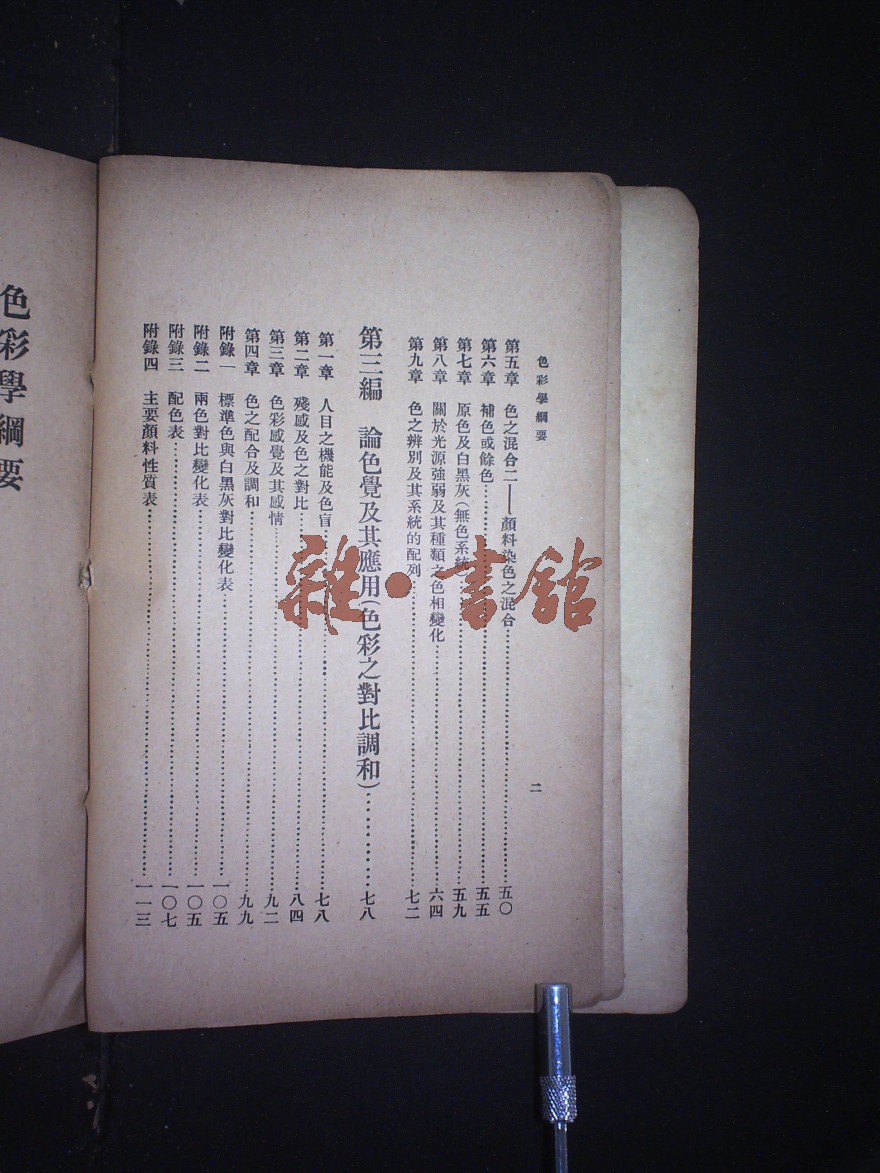 色彩學綱要
二
第五章 色之混合二——顏料染色之混合……五〇
第六章 補色或餘色……五五
第七章 原色及白黑灰(無色系統……五九
第八章 關於光源強弱及其種類之色相變化……六四
第九章 色之辨別及其系統的配列……七二
第三編 論色覺及其應用(色彩之對比調和)……七八
第一章 人目之機能及色盲……七八
第二章 殘感及色之對比……八四
第三章 色彩感覺及其感情……九二
第四章 色之配合及調和……九九
附錄一 標準色與白黑灰對比變化表……一〇五
附錄二 兩色對比變化表……一〇五
附錄三 配色表……一〇七
附錄四 主要顏料性質表……一一三
色彩學綱要
雜·書館